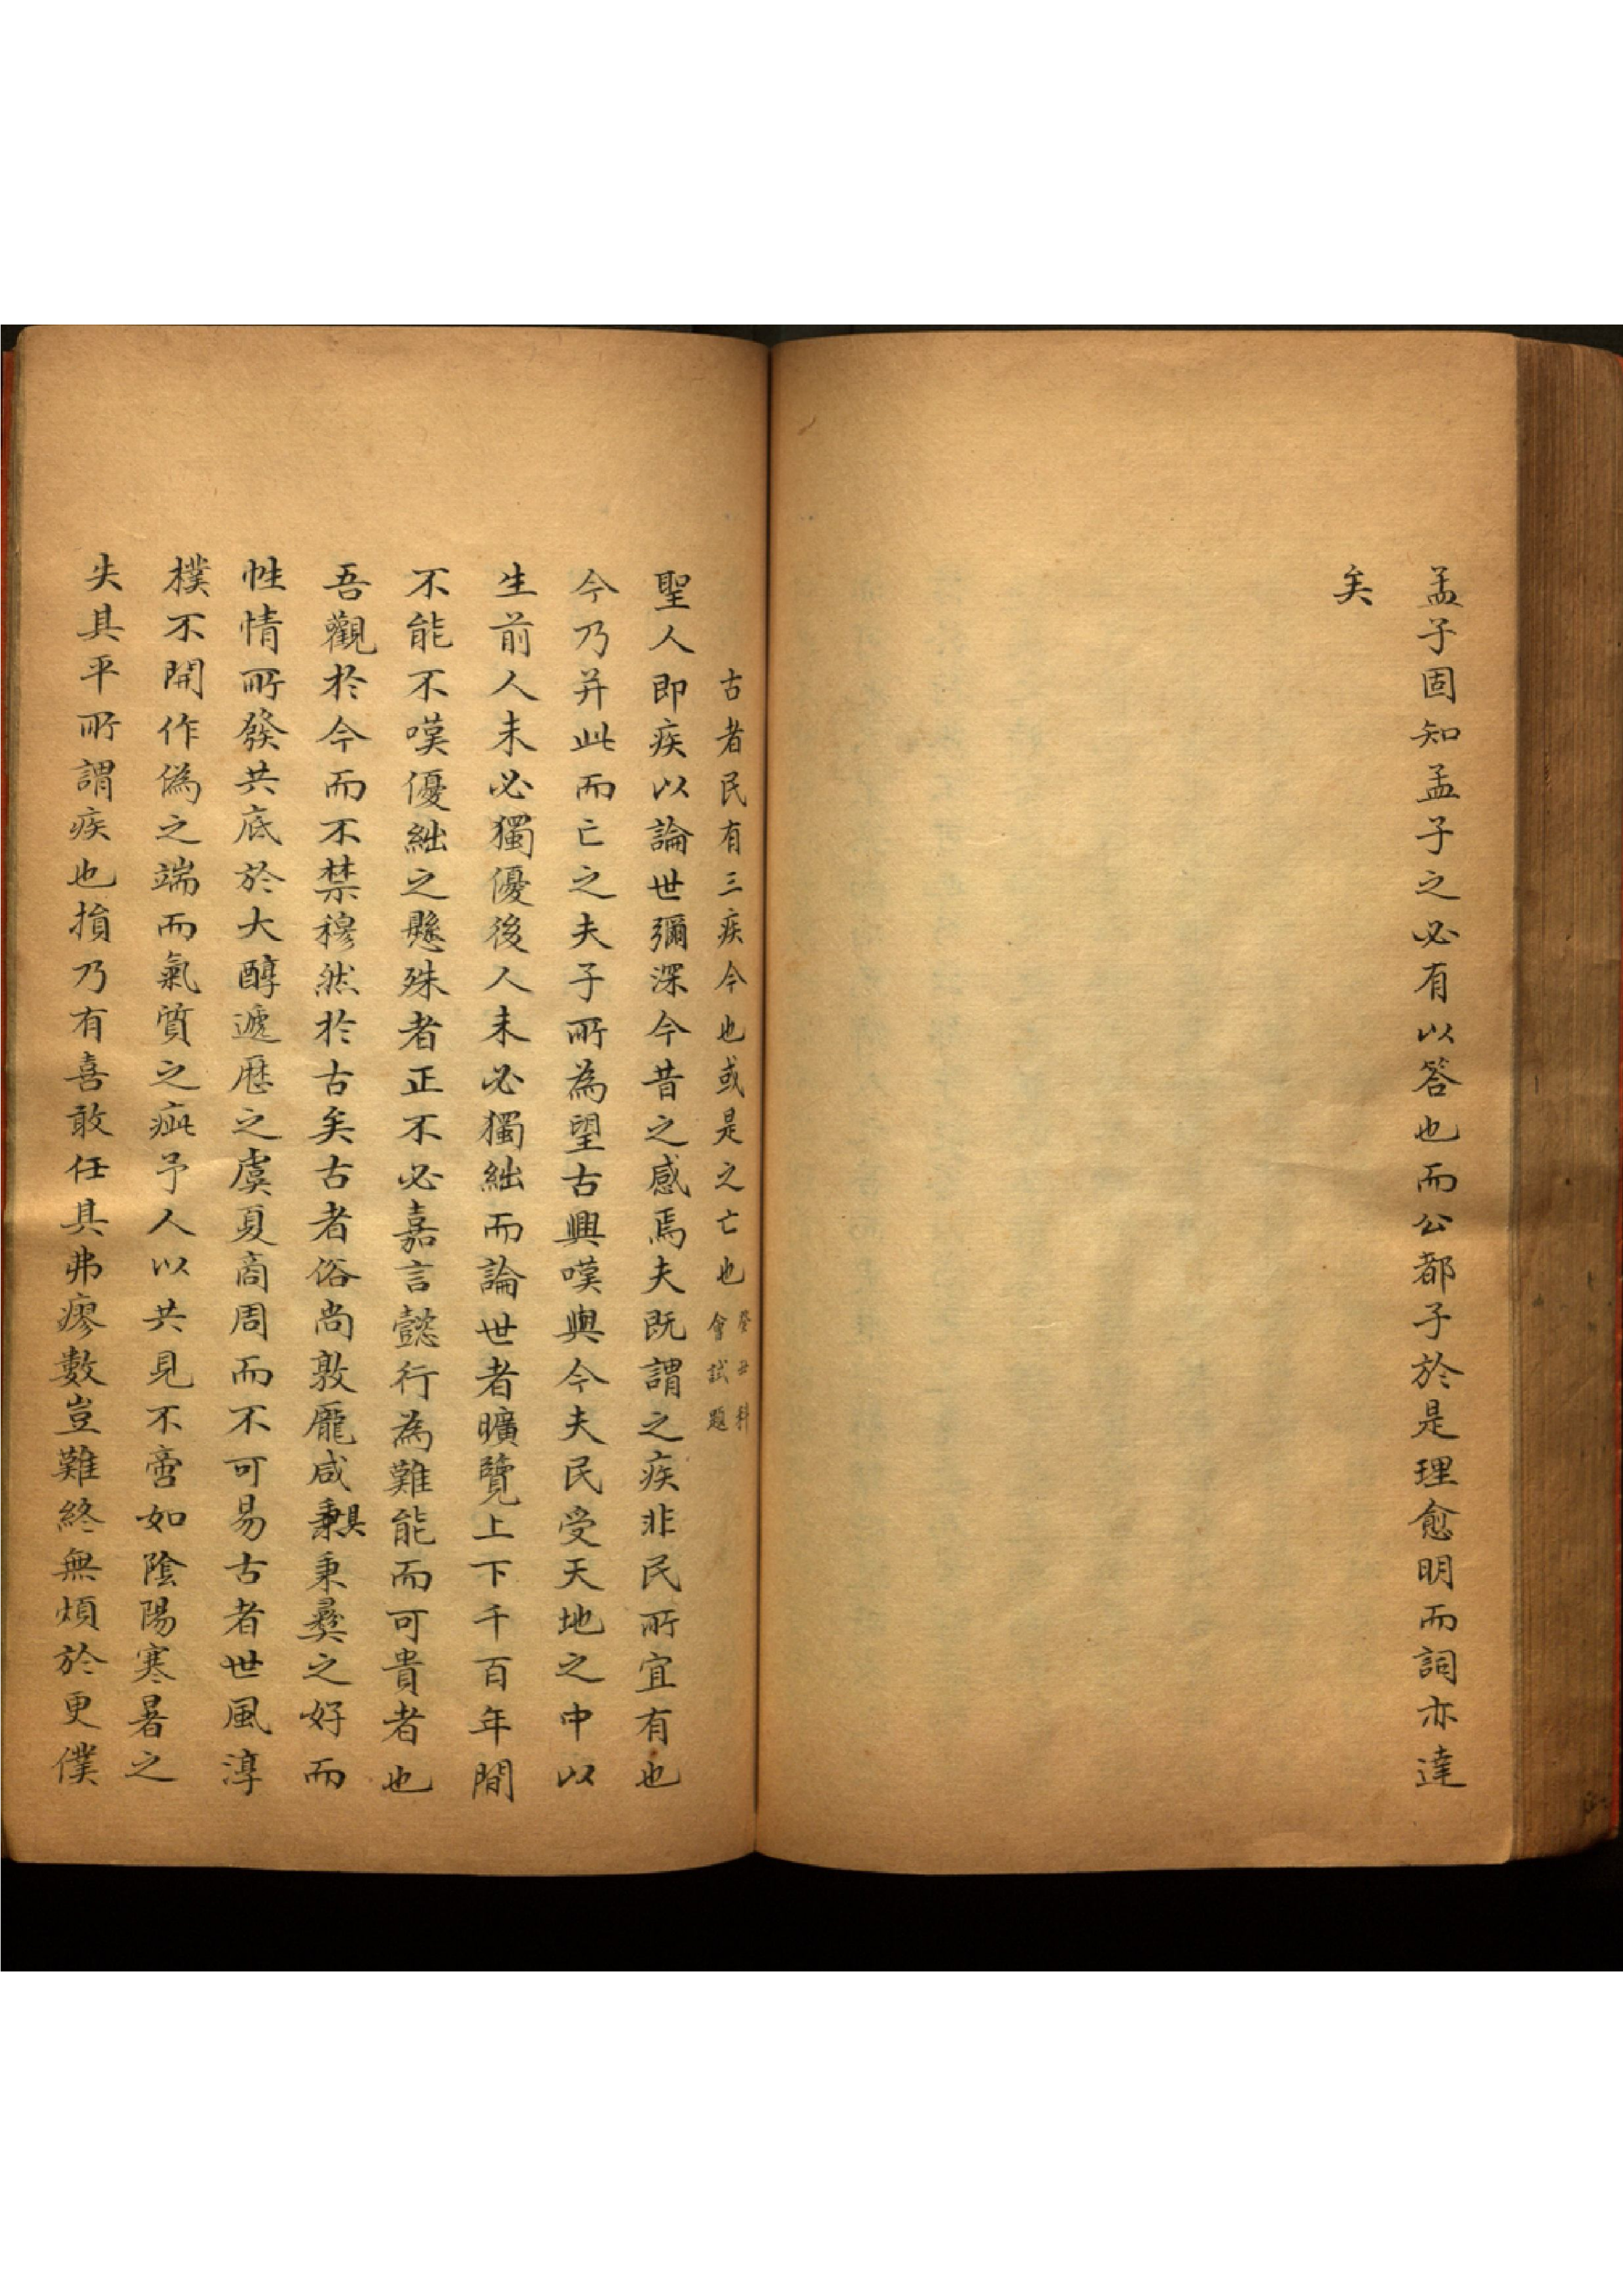 孟子固知孟子之必有以答也而公都子於是理愈明而詞亦達
矣
古者民有三疾今也或是之亡也 癸丑科會試題
聖人即疾以論世彌深今昔之感焉夫既謂之疾非民所宜有也
今乃并此而亡之夫子所為望古興嘆與今夫民受天地之中以
生前人未必獨優後人未必獨絀而論世者曠覽上下千百年間
不能不嘆優絀之懸殊者正不必嘉言懿行為難能而可貴者也
吾觀於今而不禁穆然於古矣古者俗尚敦龐咸具秉彞之好而
性情所發共底於大醇遞歷之虞夏商周而不可易古者世風淳
樸不開作偽之端而氣質之疵予人以共見不啻如陰陽寒暑之
失其平所謂疾也損乃有喜敢任其弗瘳數豈難終無煩於更僕